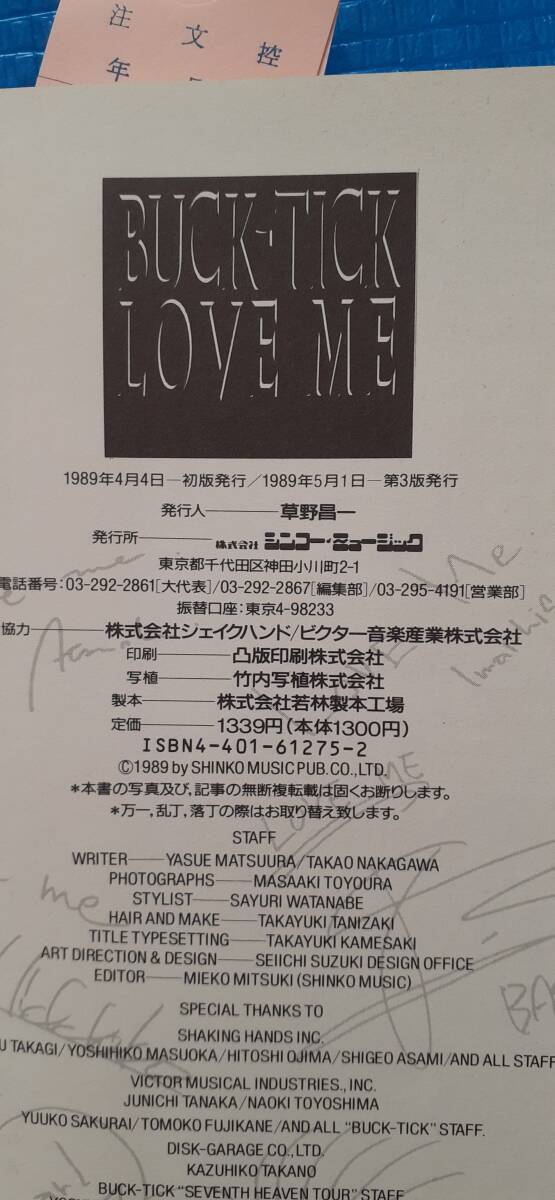 注文控
年
BUCK-TICK
LOVE ME
1989年4月4日―初版発行／1989年5月1日―第3版発行
発行人――草野昌一
発行所――株式会社 シンコー・ミュージック
東京都千代田区神田小川町2-1
電話番号:03-292-2861[大代表]/03-292-2867[編集部]/03-295-4191[営業部]
振替口座:東京4-98233
協力――株式会社シェイクハンド/ビクター音楽産業株式会社
印刷――凸版印刷株式会社
写植――竹内写植株式会社
製本――株式会社若林製本工場
定価――1339円(本体1300円)
ISBN4-401-61275-2
©1989 by SHINKO MUSIC PUB. CO., LTD.
＊本書の写真及び,記事の無断複転載は固くお断りします。
＊万一,乱丁,落丁の際はお取り替え致します。
LOVE ME
STAFF
WRITER――YASUE MATSUURA/TAKAO NAKAGAWA
PHOTOGRAPHS――MASAAKI TOYOURA
STYLIST――SAYURI WATANABE
HAIR AND MAKE――TAKAYUKI TANIZAKI
TITLE TYPESETTING――TAKAYUKI KAMESAKI
ART DIRECTION & DESIGN――SEIICHI SUZUKI DESIGN OFFICE
EDITOR――MIEKO MITSUKI (SHINKO MUSIC)
me
SPECIAL THANKS TO
SHAKING HANDS INC.
TAKAGI/YOSHIHIKO MASUOKA/HITOSHI OJIMA/SHIGEO ASAMI/AND ALL STAFF
VICTOR MUSICAL INDUSTRIES., INC.
JUNICHI TANAKA/NAOKI TOYOSHIMA
YUUKO SAKURAI/TOMOKO FUJIKANE/AND ALL "BUCK-TICK" STAFF.
DISK-GARAGE CO., LTD.
KAZUHIKO TAKANO
BUCK-TICK "SEVENTH HEAVEN TOUR" STAFF